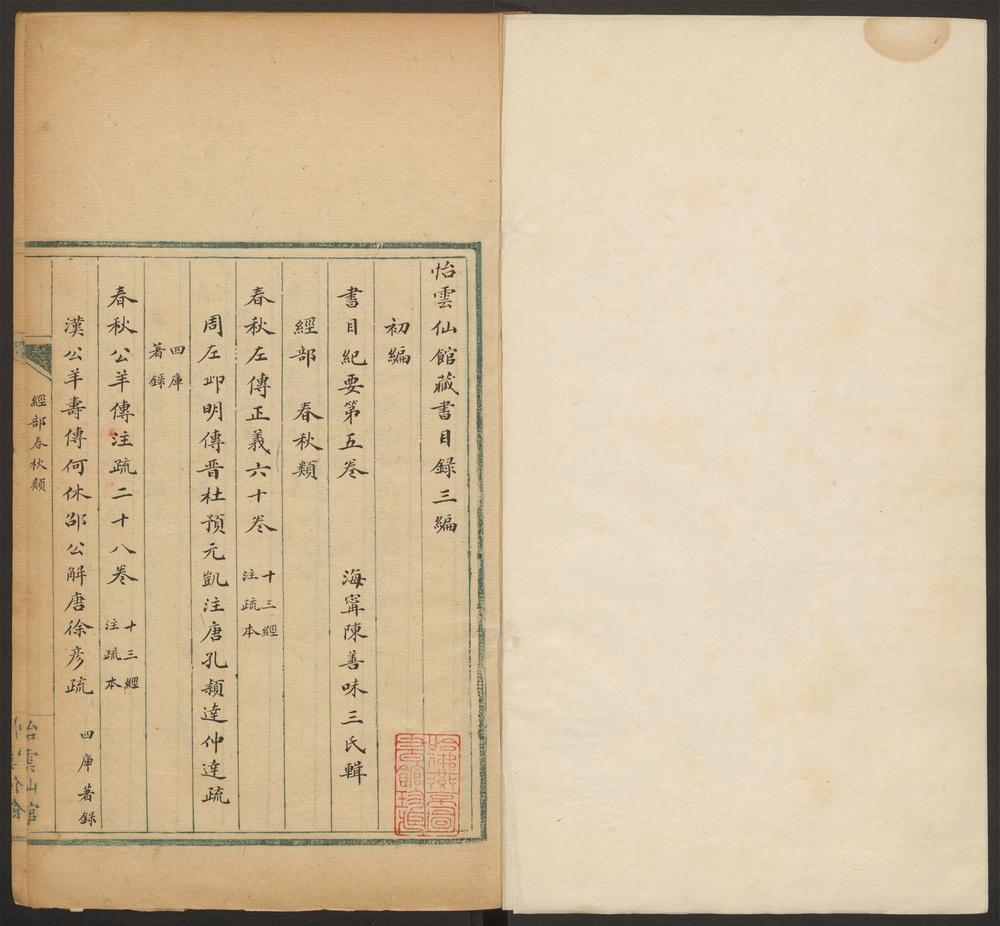 怡雲仙館藏書目録三編
初編
書目紀要第五卷 海甯陳善味三氏輯
經部 春秋類
春秋左傳正義六十卷 十三經注疏本
周左邱明傳晉杜預元凱注唐孔穎達仲達疏
四庫著録
春秋公羊傳注疏二十八卷 十三經注疏本
漢公羊壽傳何休邵公解唐徐彥疏 四庫著録
經部春秋類
哈佛燕京圖書館珍藏